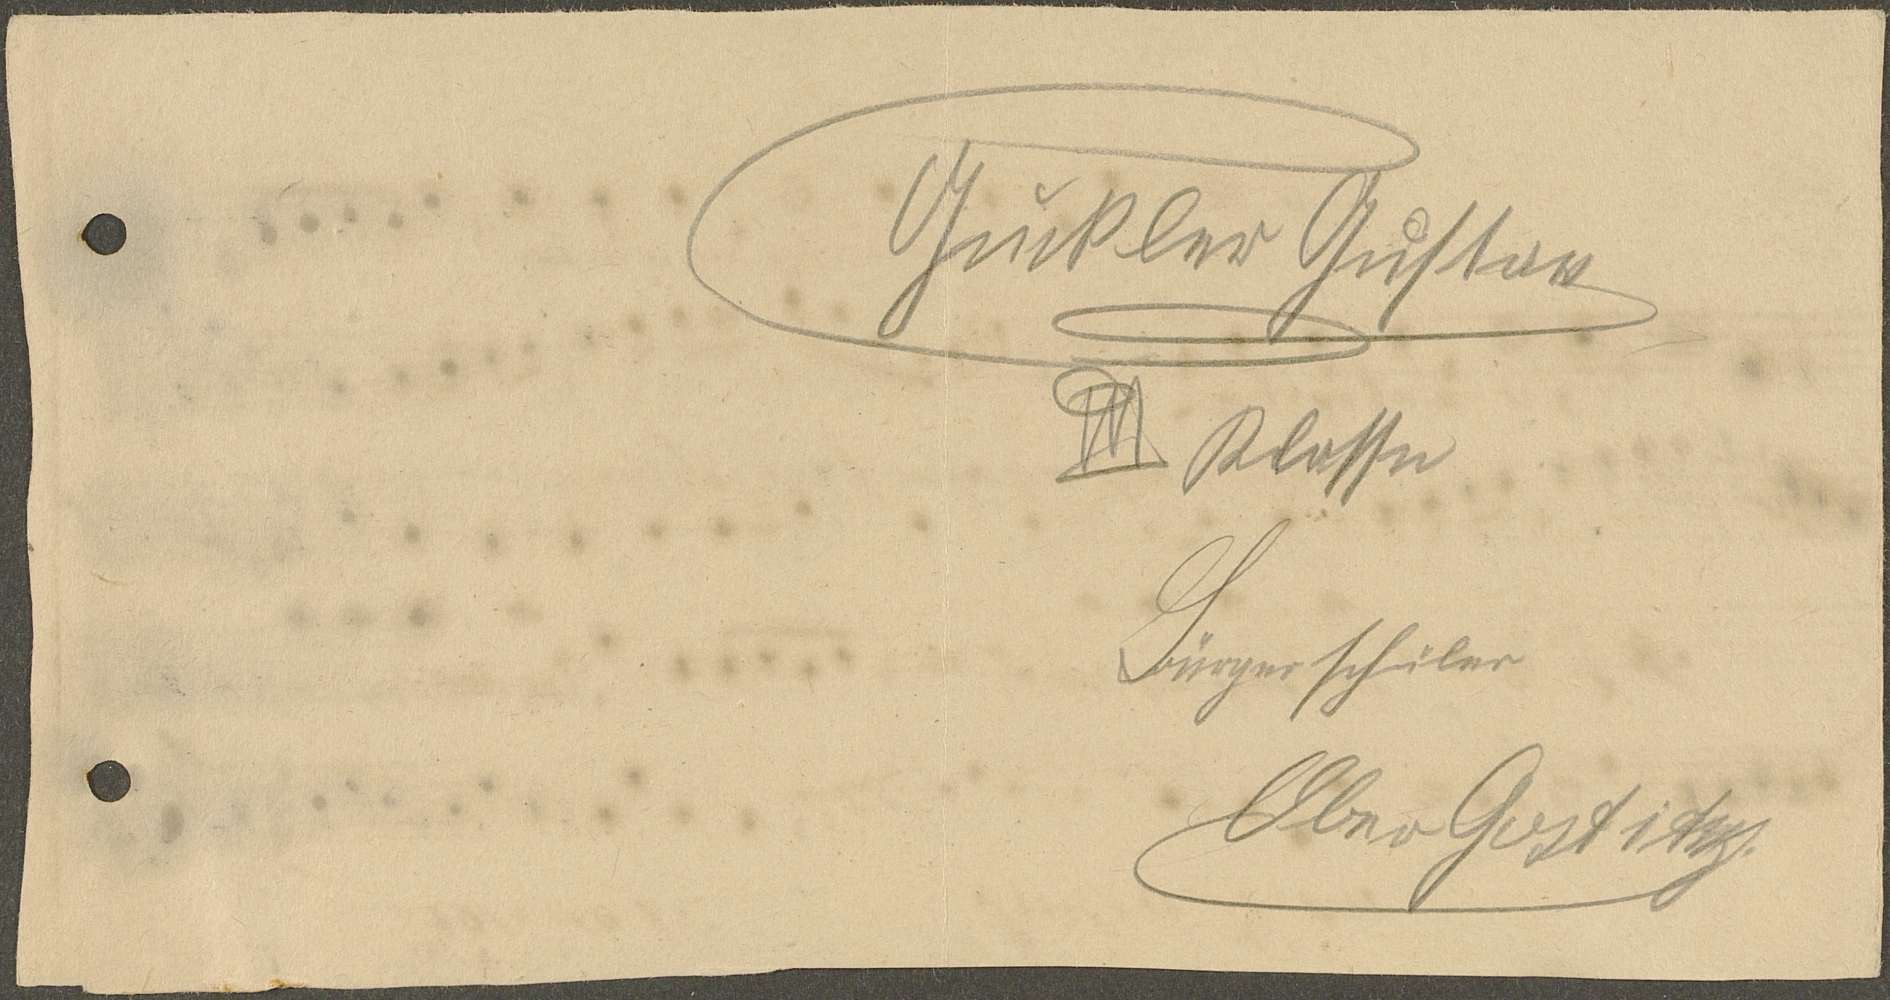 Guckler Gustav
III Klasse
Bürgerschüler
Ober Gostitz.